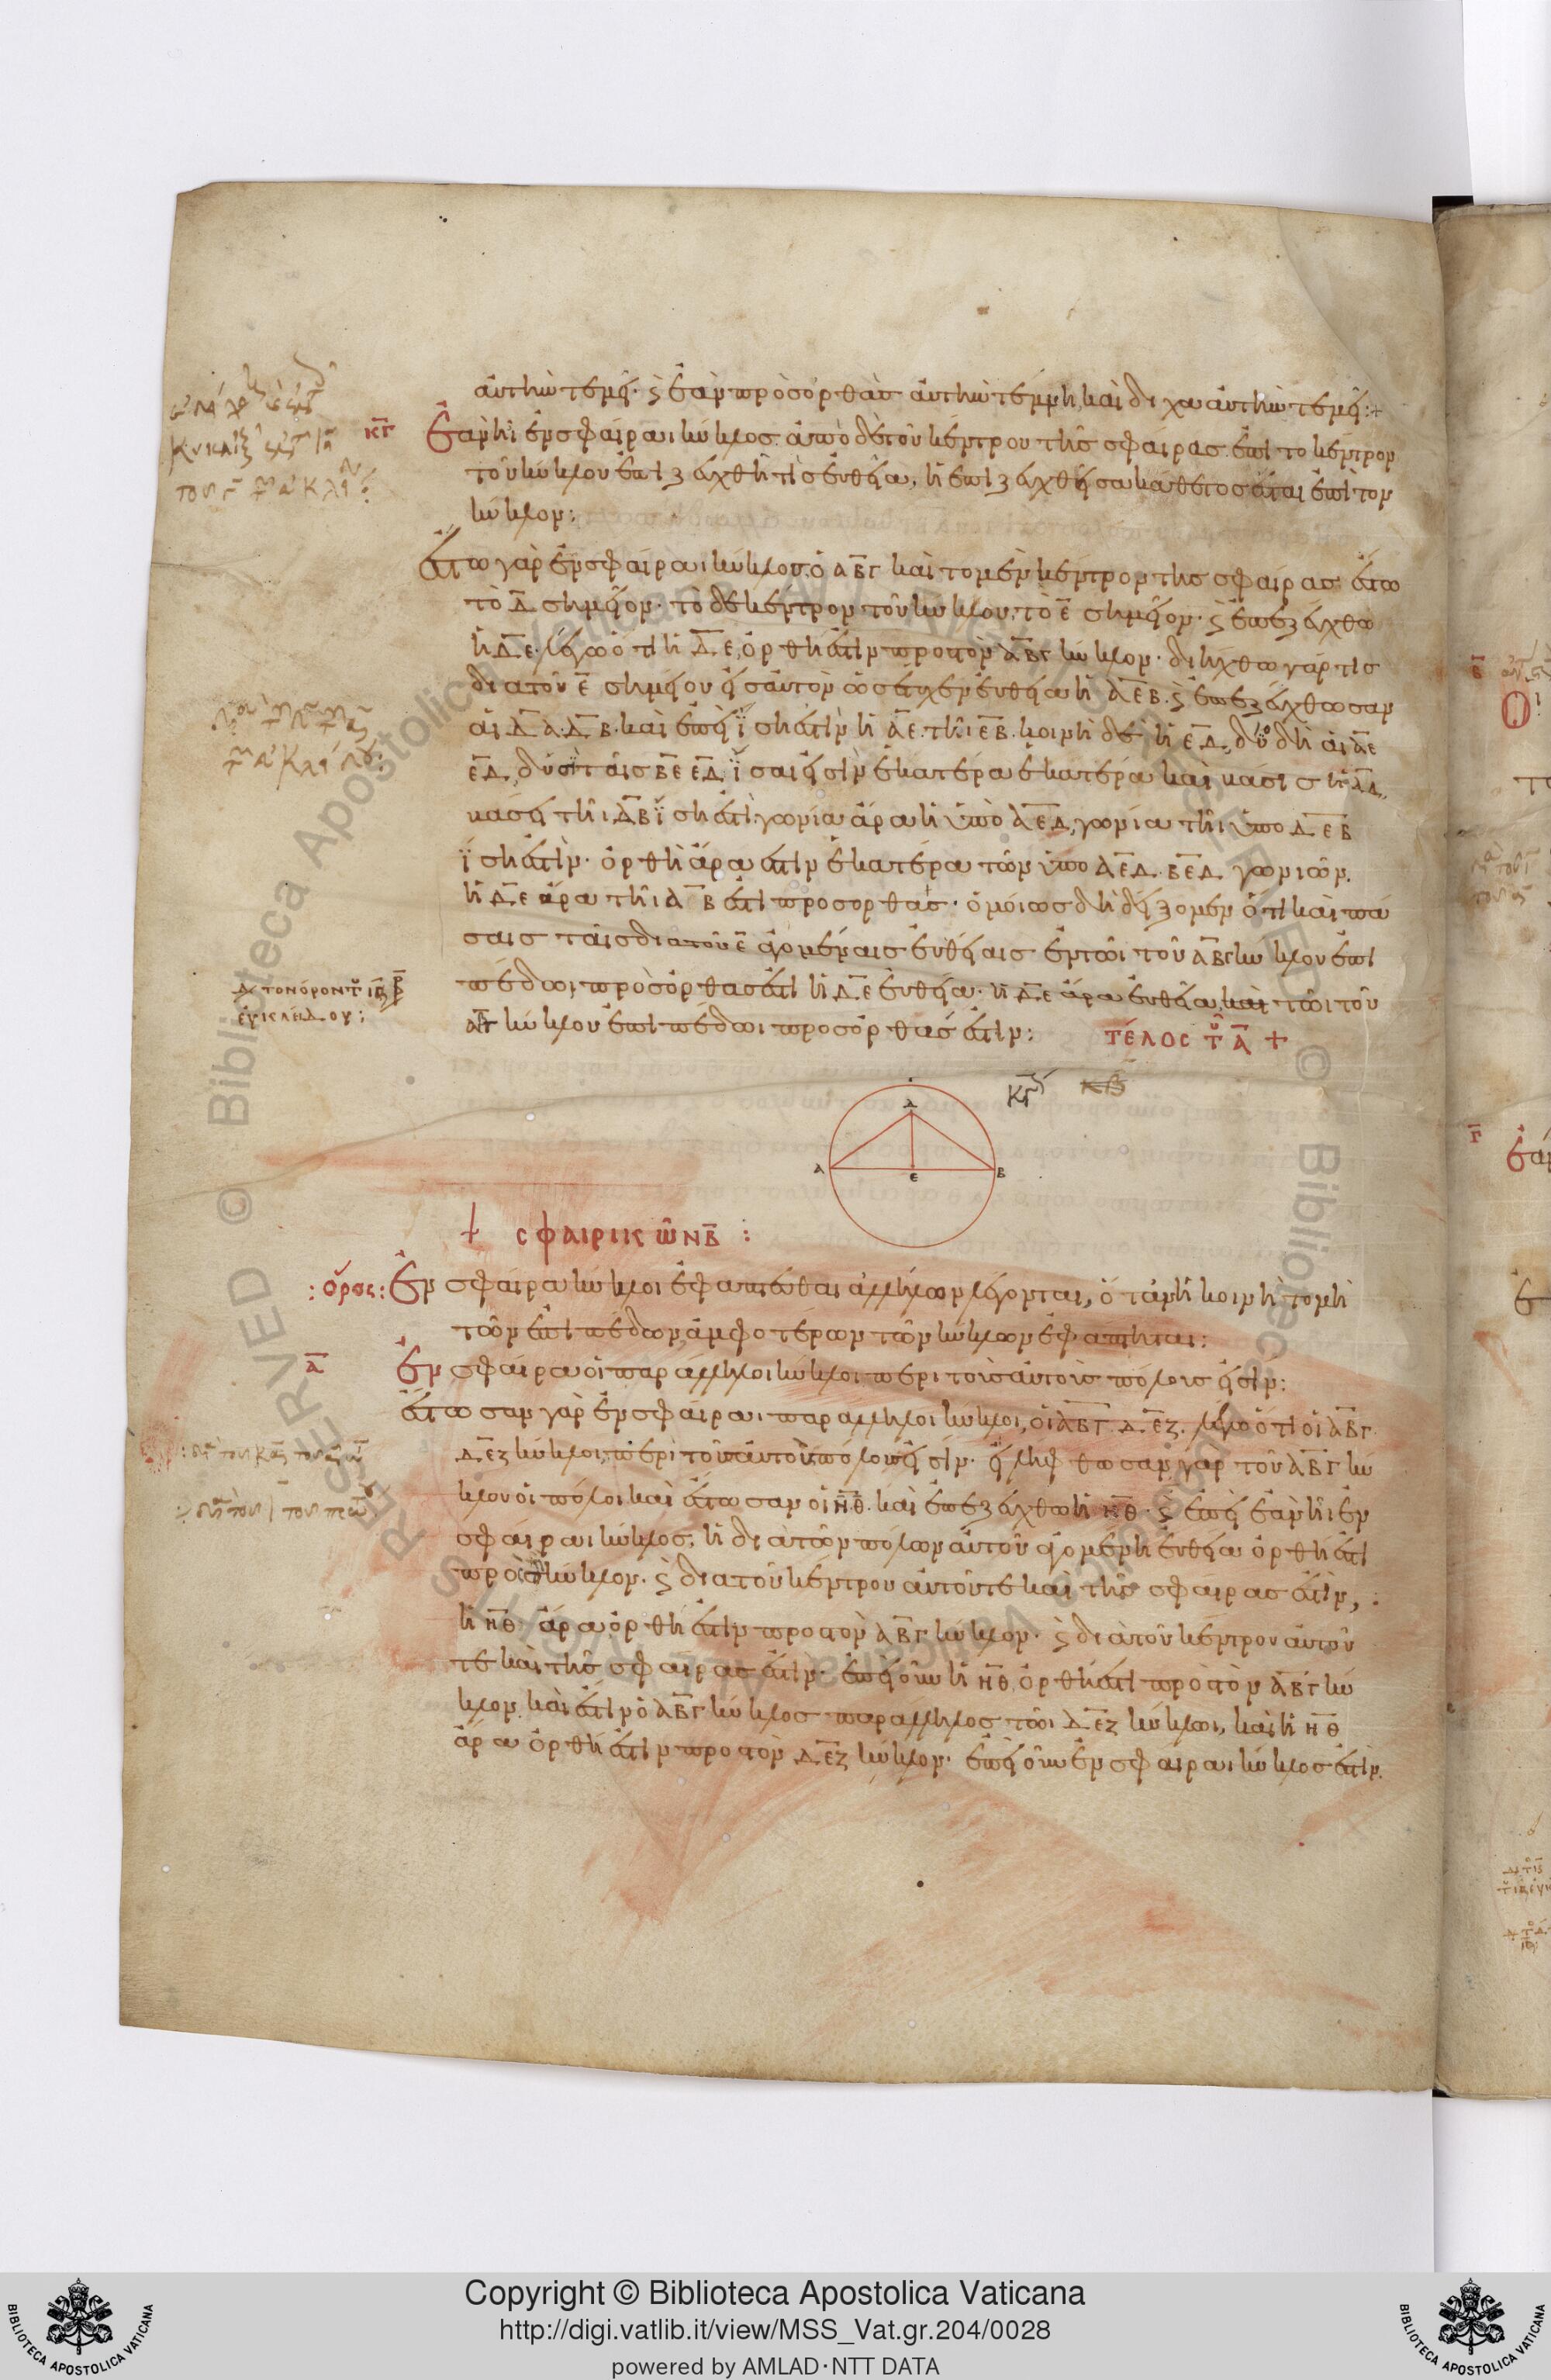 αὐτὴν τεμεῖ· καὶ ἐὰν πρὸς ὀρθὰς αὐτὴν τέμνη, καὶ δίχα αὐτὴν τεμεῖ:+
κγ Ἐὰν ἦι ἐν σφαίραι κύκλος. ἀπὸ δὲ τοῦ κέντρου τῆς σφαίρας ἐπὶ το κέντρον
τοῦ κύκλου ἐπιζευχθῆ τὶς εὐθεῖα, ἡ ἐπιζευχθεῖσα κάθετος ἐσται ἐπὶ τον
κύκλον:
ἔστω γὰρ ἐν σφαίραι κύκλος ὁ ΑΒΓ καὶ το μὲν κέντρον της σφαίρας ἔστω
τὸ Δ σημεῖον· τὸ δὲ κέντρον τοῦ κύκλου, τὸ Ε σημεῖον· καὶ ἐπεζεύχθω
ἡ ΔΕ. λέγω ὅτι ἡ ΔΕ, ὀρθή ἐστιν προς τὸν ΑΒΓ κύκλον· διήχθω γάρ τις
διὰ τοῦ Ε σημείου εἰς αὐτὸν ὡς ἔτυχεν εὐθεῖα ἡ ΑΕΒ. καὶ ἐπεζεύχθωσαν
αἱ ΔΑ. ΔΒ. καὶ ἐπεὶ ἴση ἐστὶν ἡ ΑΕ. τῆι ΕΒ. κοινὴ δὲ ἡ ΕΔ, δύο δὴ αἱ ΑΕ
ΕΔ, δυσὶ ταῖς ΒΕ ΕΔ ἴσαι εἰσὶν ἑκατέρα ἑκατέρα καὶ βάσις ἡ ΑΔ,
βάσει τῆι ΔΒ ἴση ἐστὶ. γωνία ἄρα ἡ ὑπὸ ΑΕΔ, γωνία τῆι ὑπο ΔΕΒ
ἴση ἐστὶν· ὀρθὴ ἄρα ἐστιν ἑκατέρα τῶν ὑπο ΑΕΔ. ΒΕΔ γωνιῶν.
ἡ ΔΕ ἄρα τῆι ΑΒ ἐστὶ προς ορθάς· ὁμοίως δὴ δείξομεν ὅτι καὶ πά
σαις ταῖς δια τοῦ Ε ἀγομέναις εὐθείαις ἐν τῶι τοῦ ΑΒΓ κύκλου ἐπι
πέδωι πρὸς ὀρθας ἐστὶ ἡ ΔΕ εὐθεῖα· ἡ ΔΕ ἄρα εὐθεῖα, και τῶι τοῦ
ΑΒΓ κύκλου ἐπιπέδωι προς ὀρθάς ἐστιν:
τέλος τοῦ Α +
ΚΓ
Δ
Α Ε Β
+ σφαιρικῶν Β :
:ὅρος: Ἐν σφαίρα κύκλοι ἐφάπτεσθαι ἀλλήλων λέγονται, ὅταν ἡ κοινὴ τομὴ
τῶν ἐπιπέδων ἀμφοτέρων τῶν κύκλων ἐφάπτηται:
Α Ἐν σφαίρα οἱ παράλληλοι κύκλοι περι τοὺς αὐτοὺς πόλους εἰσίν:
ἔστωσαν γὰρ ἐν σφαίραι παραλληλοι κύκλοι, οἱ ΑΒΓ. ΔΕΖ. λέγω ὅτι οἱ ΑΒΓ
ΔΕΖ κύκλοι, περὶ τοὺς αὐτοὺς πόλους εἰσίν· εἰλήφθωσαν γαρ τοῦ ΑΒΓ κύ
κλου οἱ πόλοι καὶ ἔστωσαν οἱ Η.Θ. καὶ ἐπεζεύχθω ἡ ΗΘ· καὶ ἐπεὶ ἐὰν ἦι ἐν
σφαίραι κύκλος, ἡ διὰ τῶν πόλων αὐτοῦ ἀγομένη εὐθεῖα ὀρθή ἐστι
πρὸς τὸν κύκλον. καὶ δια τοῦ κέντρου αὐτοῦ τε καὶ τῆς σφαίρας ἐστίν,
ἡ ΗΘ ἄρα ὀρθή ἐστιν προς τὸν ΑΒΓ κύκλον· καὶ διὰ τοῦ κέντρου αὐτοῦ
τε καὶ τῆς σφαίρας ἐστίν· ἐπεὶ οὖν ἡ ΗΘ, ὀρθή ἐστι πρὸς τὸν ΑΒΓ κύ
κλον, καὶ ἐστιν ὁ ΑΒΓ κύκλος παράλληλος τῶι ΔΕΖ κύκλωι, καὶ ἡ ΗΘ
ἄρα ὀρθή ἐστιν προς τὸν ΔΕΖ κύκλον· ἐπεὶ οὖν ἐν σφαιραι κύκλος ἐστίν.
Copyright © Biblioteca Apostolica Vaticana
http://digi.vatlib.it/view/MSS_Vat.gr.204/0028
powered by AMLAD·NTT DATA
BIBLIOTECA APOSTOLICA VATICANA
BIBLIOTECA APOSTOLICA VATICANA